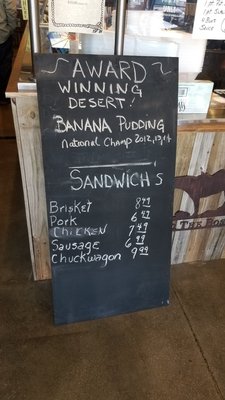 AWARD
WINNING
DESERT!
BANANA PUDDING
National Champ 2012,13,14
SANDWICH'S
Brisket 8 49
Pork 6 49
Chicken 7 49
Sausage 6 99
Chuckwagon 9 99